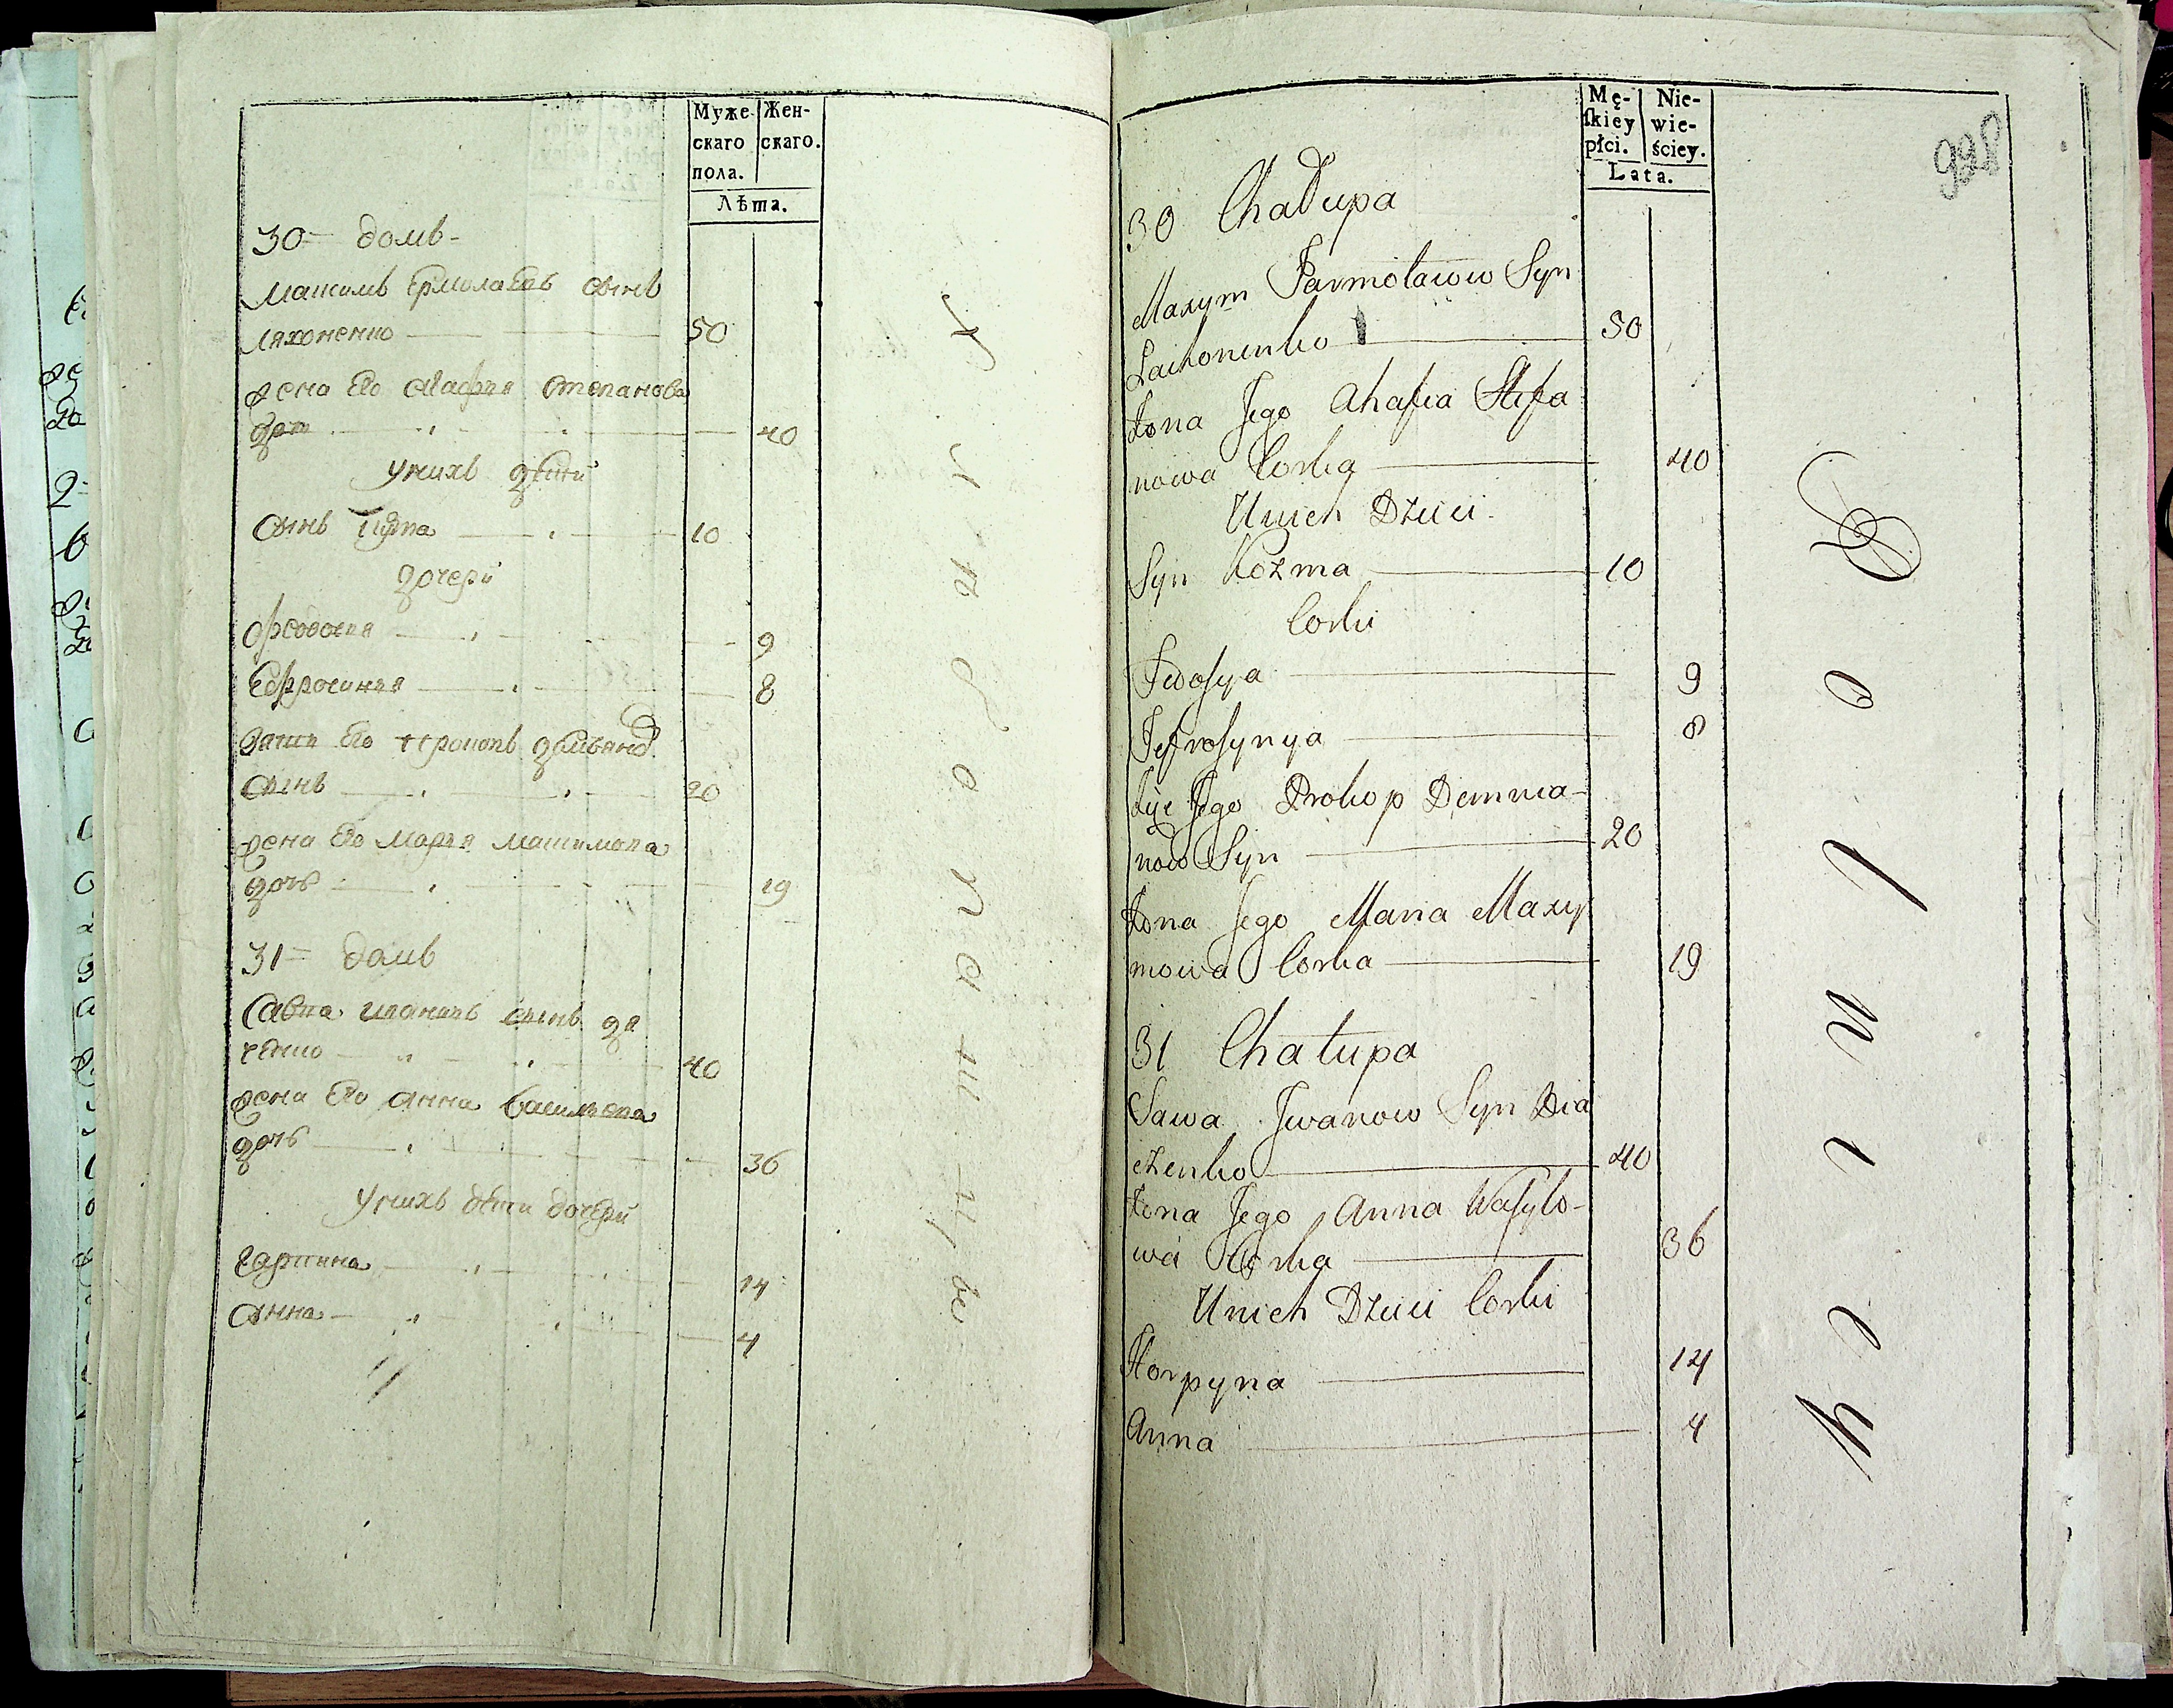 Муже-
скаго
пола.
Жен-
скаго.
Лѣта.
30 домъ
Максимъ Ермолаевъ сынъ
Ляхоненко 50
жена его Агафия Степанова
доч 40
У нихъ дѣти
сынъ Кузма 10
дочери
Феодосия 9
Ефросиния 8
зять его Прокопъ Демьянов
сынъ 20
жена его Марья Максимова
дочь 19
31 домъ
Савва Ивановъ сынъ Дя
ченко 40
жена его Анна Василева
дочь 36
У нихъ дѣти дочери
Гарпина 14
Анна 4
Mę-
ſkiey
płci.
Nie-
wie-
ściey.
Lata.
30 Chałupa
Maxym Jarmoławow Syn
Lachonenko 50
Żona Jego Ahafia Stefa
nowa Corka 40
U nich Dzieci
Syn Kozma 10
Corki
Fedosya 9
Jefrosynya 8
Zięć Jego Prokop Demnia-
now Syn 20
Żona Jego Maria Maxy
mowa Corka 19
31 Chałupa
Sawa Jwanow Syn Dia
czenko 40
Żona Jego Anna Wasylo-
wa Corka 36
U nich Dzieci Corki
Horpyna 14
Anna 4